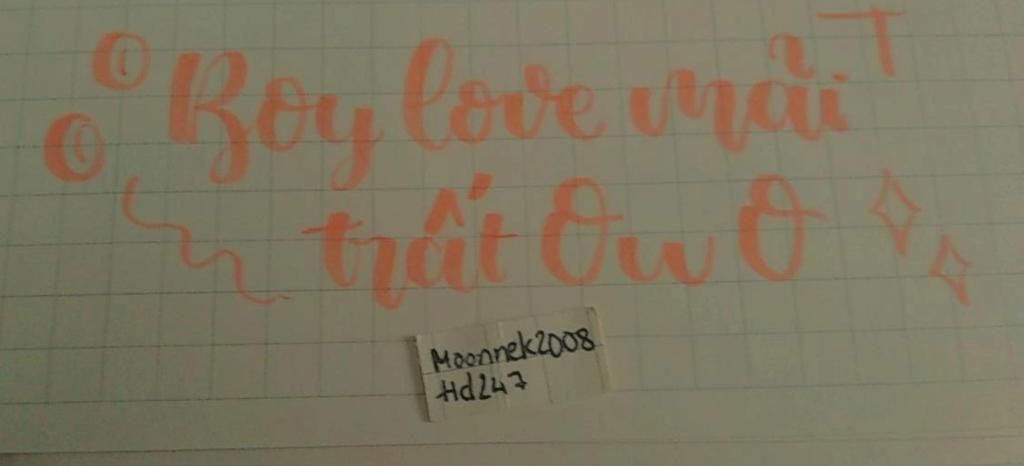 Boy love mãi
trất OwO
Moonnek2008
Hd247